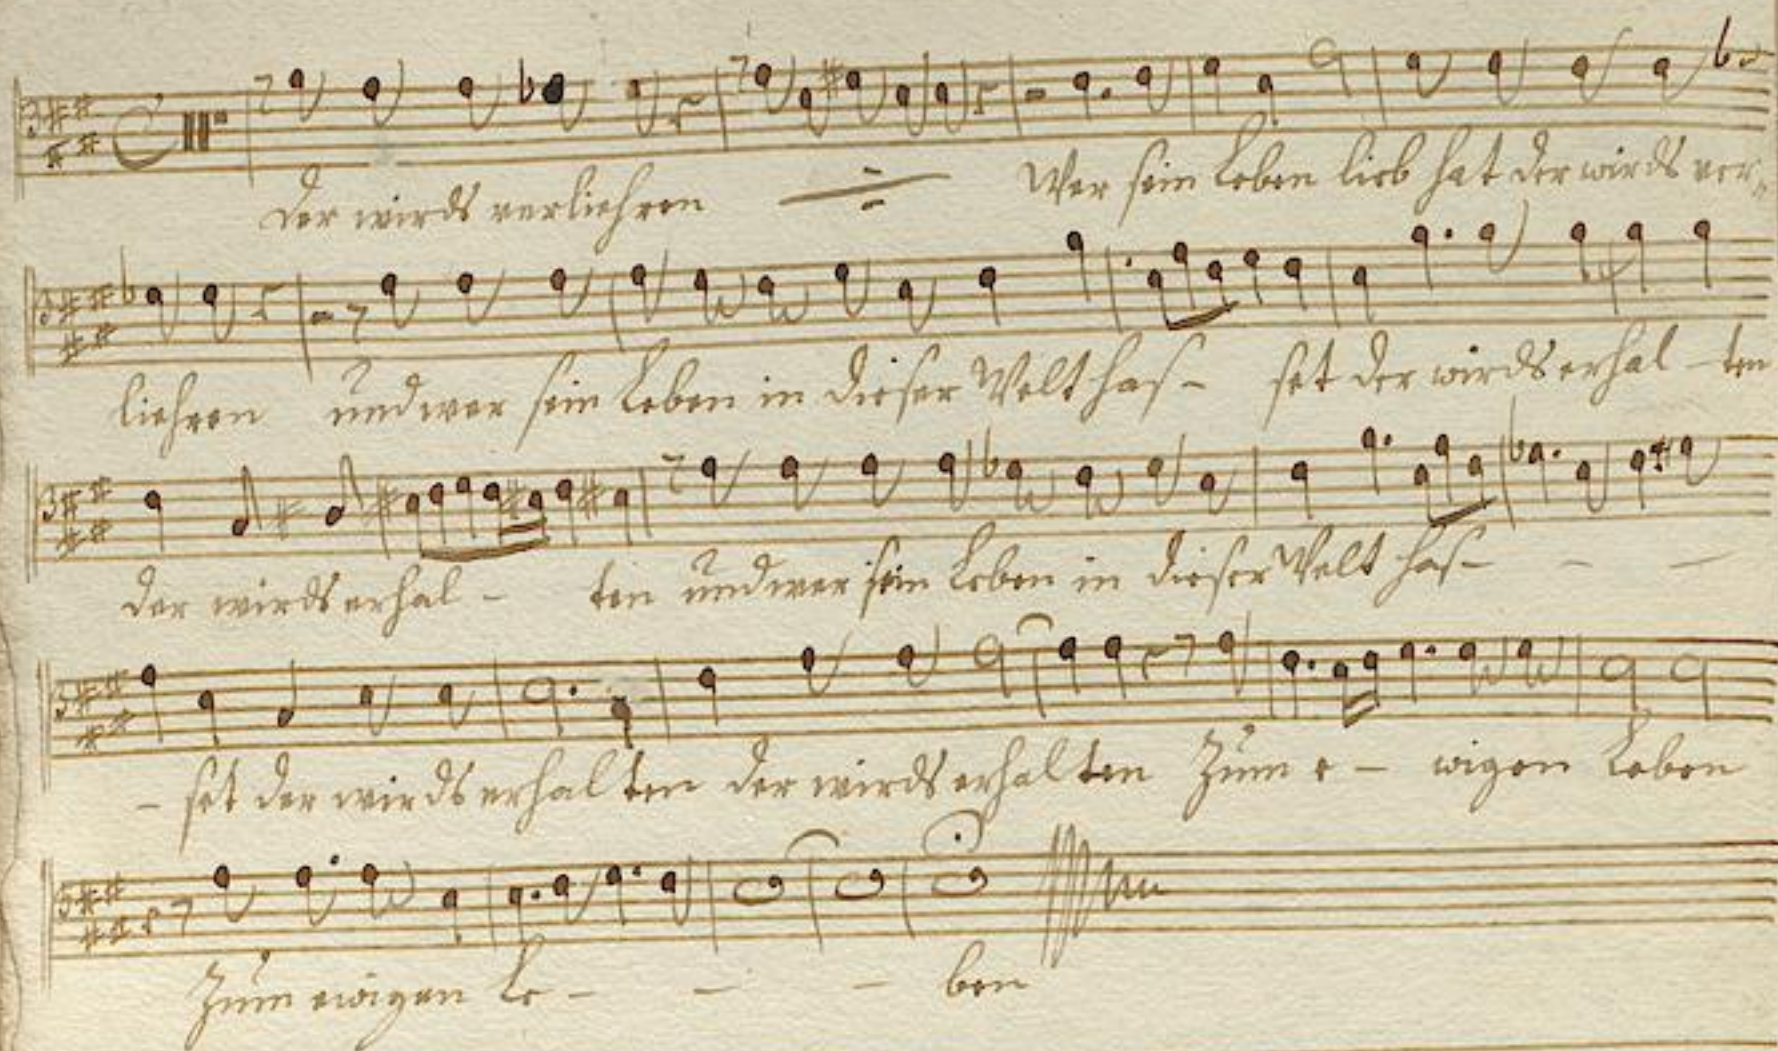 der wirds verliehren Wer sein Leben lieb hat der wirds ver-
liehren und wer sein Leben in dieser Welt has- set der wirds erhal - ten
der wirds erhal - ten und wer sein Leben in dieser Welt has- - -
- set der wirds erhalten der wirds erhalten zum e - wigen Leben
zum ewigen Le - - - ben